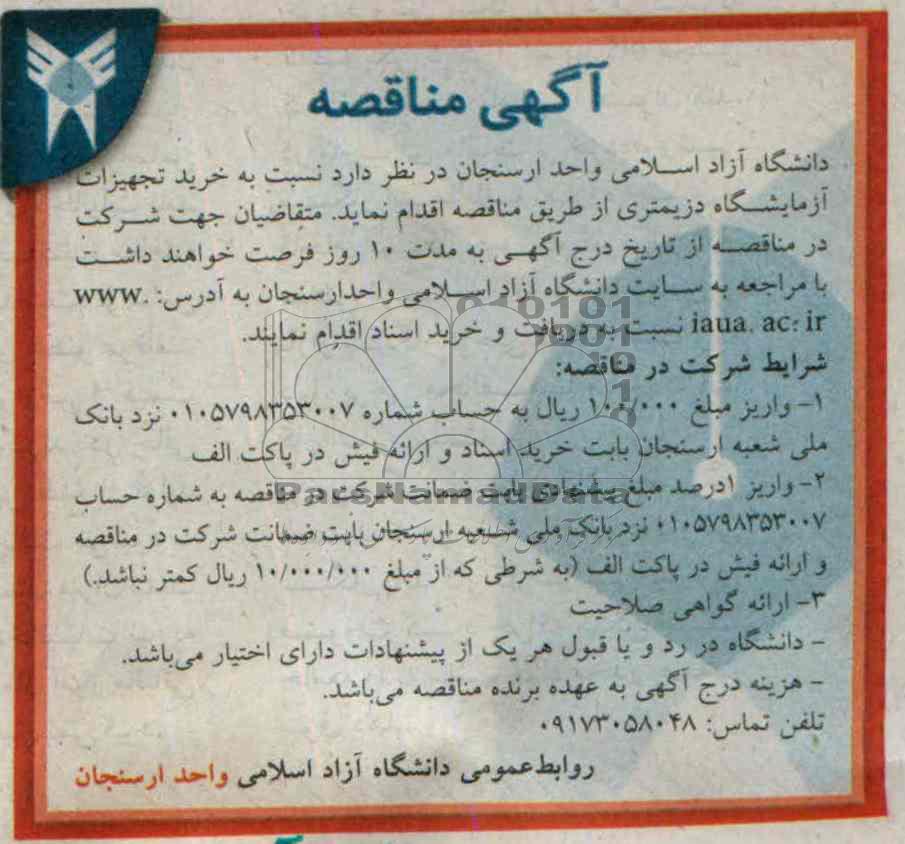 آگهی مناقصه
دانشگاه آزاد اسلامی واحد ارسنجان در نظر دارد نسبت به خرید تجهیزات
آزمایشگاه دزیمتری از طریق مناقصه اقدام نماید. متقاضیان جهت شرکت
در مناقصه از تاریخ درج آگهی به مدت ۱۰ روز فرصت خواهند داشت
با مراجعه به سایت دانشگاه آزاد اسلامی واحدارسنجان به آدرس: www.
iaua. ac: ir نسبت به دریافت و خرید اسناد اقدام نمایند.
شرایط شرکت در مناقصه:
۱- واریز مبلغ ۱۰۰/۰۰۰ ریال به حساب شماره ۰۱۰۵۷۹۸۳۵۳۰۰۷ نزد بانک
ملی شعبه ارسنجان بابت خرید اسناد و ارائه فیش در پاکت الف
۲- واریز ۱درصد مبلغ پیشنهادی بابت ضمانت شرکت در مناقصه به شماره حساب
۰۱۰۵۷۹۸۳۵۳۰۰۷ نزد بانک ملی شعبه ارسنجان بابت ضمانت شرکت در مناقصه
و ارائه فیش در پاکت الف (به شرطی که از مبلغ ۱۰/۰۰۰/۰۰۰ ریال کمتر نباشد.)
۳- ارائه گواهی صلاحیت
- دانشگاه در رد و یا قبول هر یک از پیشنهادات دارای اختیار می‌باشد.
- هزینه درج آگهی به عهده برنده مناقصه می‌باشد.
تلفن تماس: ۰۹۱۷۳۰۵۸۰۴۸
روابط‌عمومی دانشگاه آزاد اسلامی واحد ارسنجان
ParsNamadData